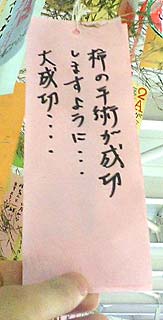 柿の手術が成功
しますように・・・
大成功・・・